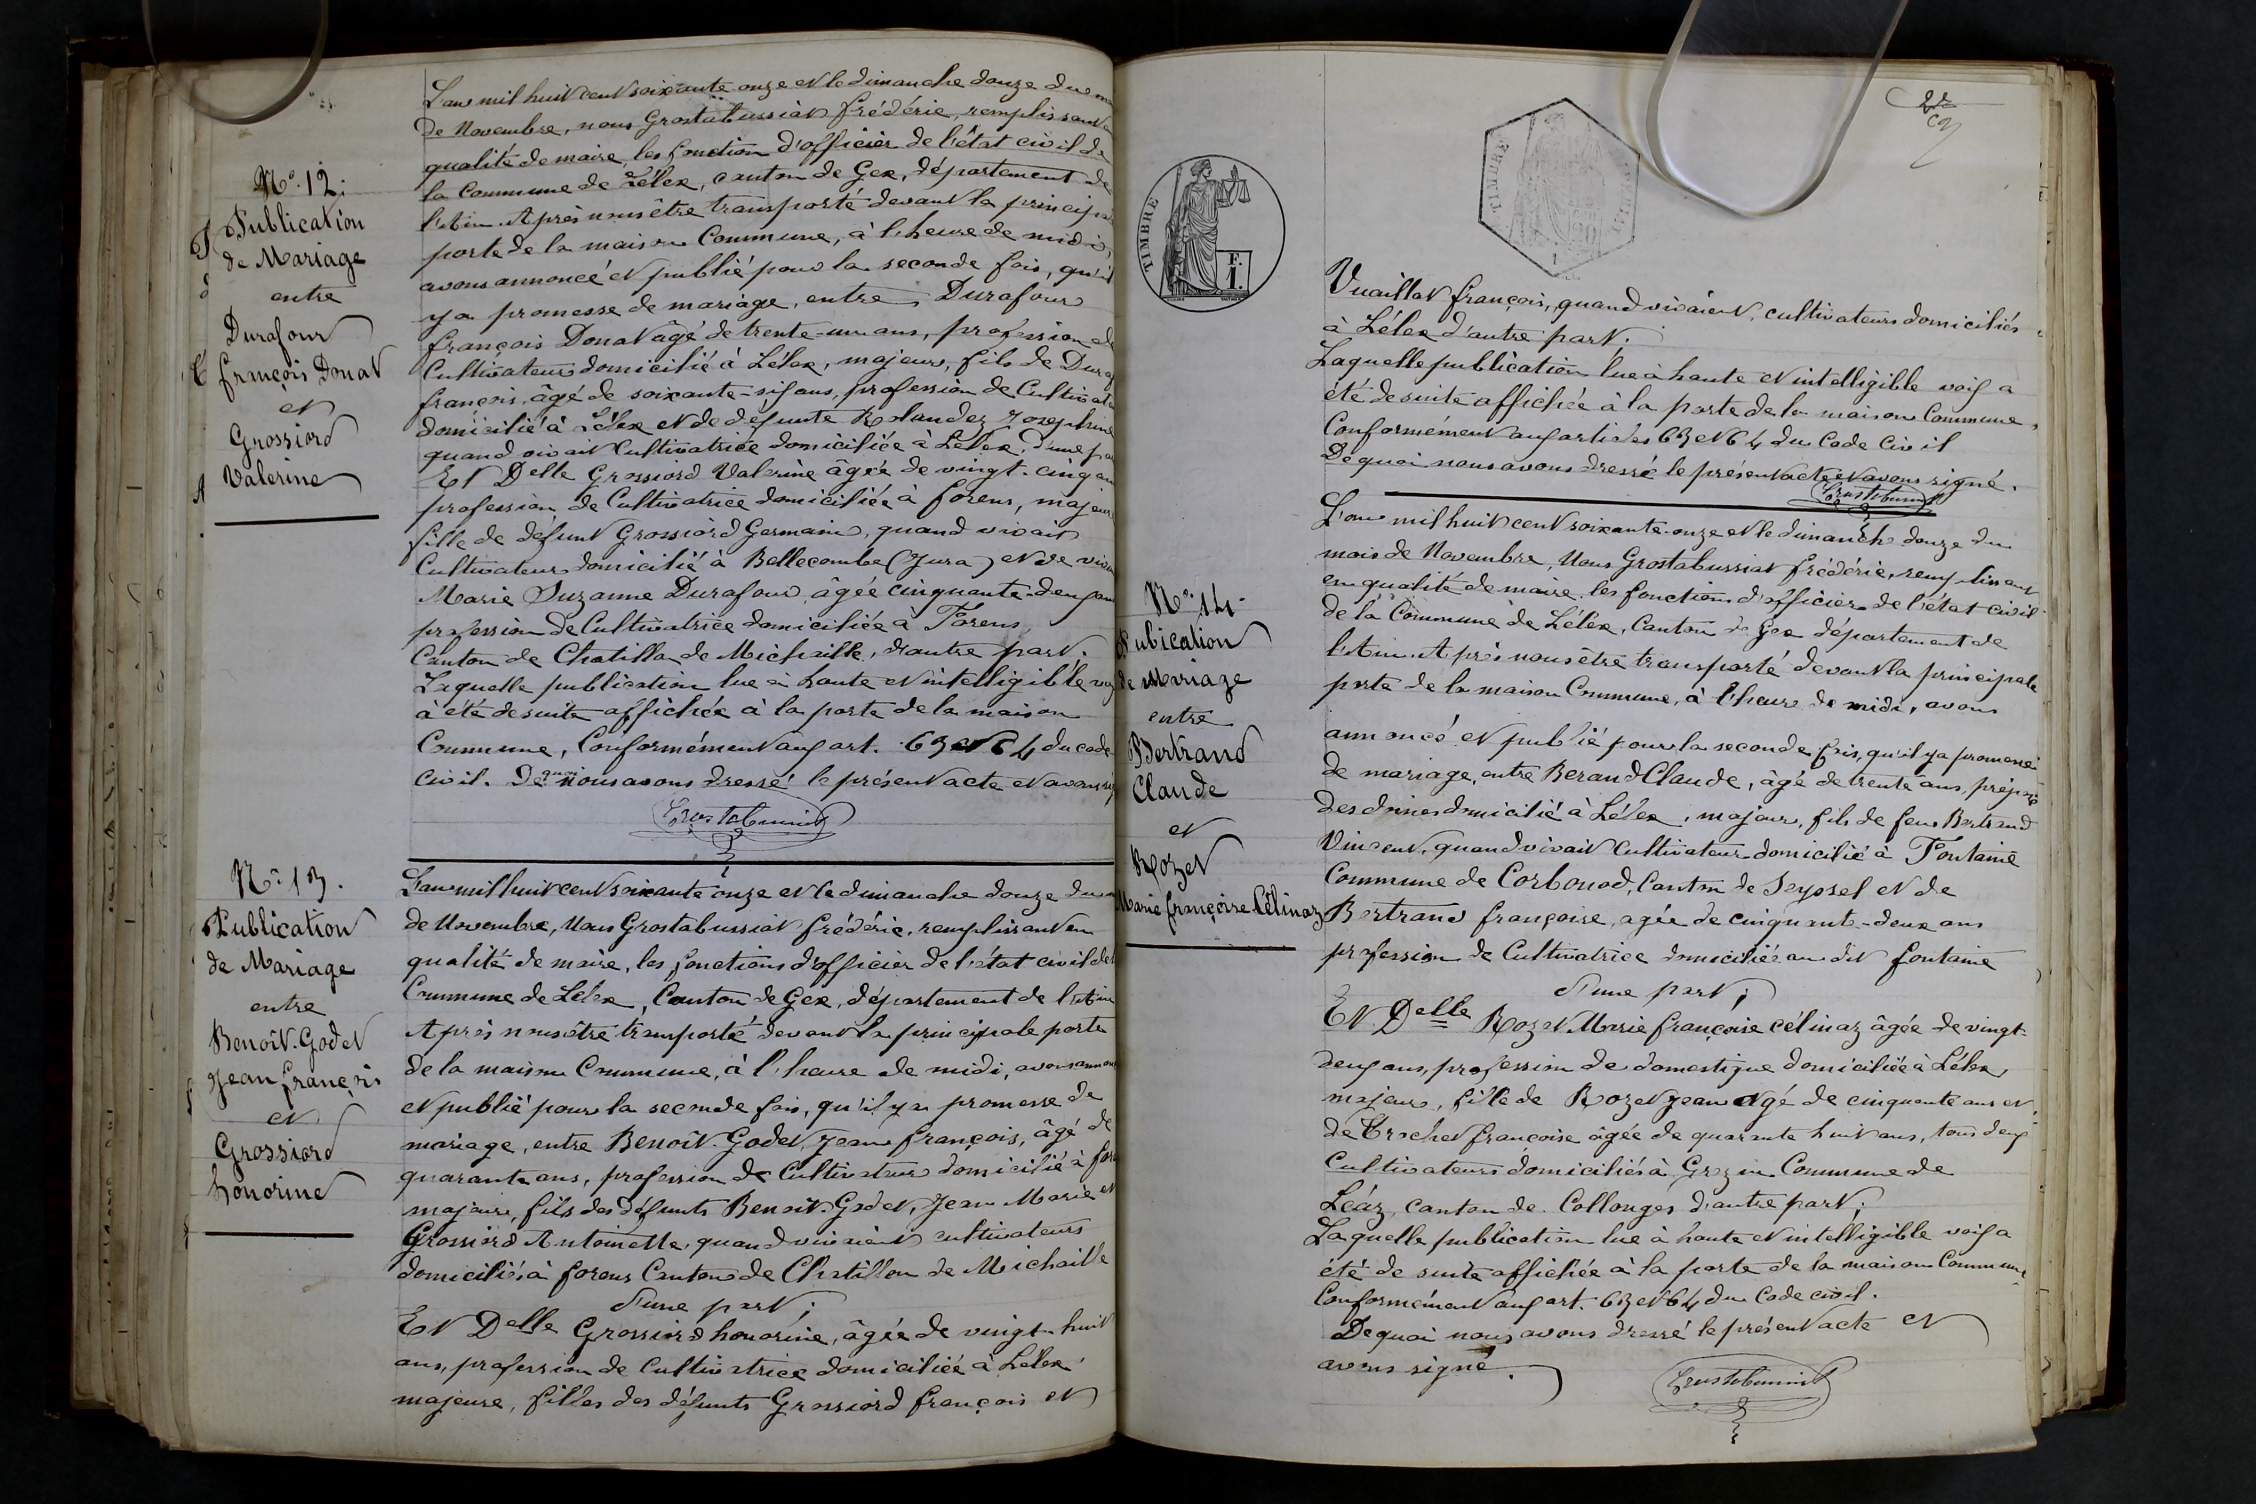 N° 12.
Publication
de Mariage
entre
Durafour
françois Donat
et
Grossiord
Valerine
L'an mil huit cent soixante onze et le dimanche douze du
de Novembre, nous Grostabussiat frédéric, remplissant
qualité de maire, les fonction d'officier de l'état civil de
la Commune de Lélex, canton de Gex, département de
l'Ain. Après nous être transporté devant la princip
porte de la maison Commune, à l'heure de midi,
avons annoncé et publié pour la seconde fois, qu'il
y a promesse de mariage, entre Durafour
françois Donat âgé de trente-un ans, profession de
Cultivateur domicilié à Lélex, majeur, fils de Duraf
françois, âgé de soixante-six ans, profession de Cultivat
domicilié à Lélex et de défunte Rolandez Josephine
quand vivait Cultivatrice domiciliée à Lélex, d'une pa
Et Delle Grossiord Valerine âgée de vingt-cinq an
profession de Cultivatrice domiciliée à forens, majeur
fille de défunt Grossiord Germain, quand vivait
Cultivateur domicilié à Bellecombe (Jura) et de viv
Marie Suzanne Durafour, âgée cinquante-deux an
profession de Cultivatrice domiciliée à Forens,
Canton de Chatillon de Michaille, d'autre part.
Laquelle publication lue à haute et intelligible voi
à été desuite affichée à la porte de la maison
Commune, Conformément aux art. 63 et 64 du code
civil. De quoi nous avons dressé le présent acte et avons si
Grostabussiat
N° 13.
Publication
de Mariage
entre
Benoît-Godet
Jean françois
et
Grossiord
honorine
L'an mil huit cent soixante onze et le dimanche douze du
de Novembre, Nous Grostabussiat frédéric, remplissant en
qualité de maire, les fonctions d'officier de l'état civil de
Commune de Lélex, Canton de Gex, département de l'Ain
Après nous être transporté devant la principale porte
de la maison Commune, à l'heure de midi, avons annon
et publié pour la seconde fois, qu'il y a promesse de
mariage, entre Benoît-Godet, Jean françois, âgé de
quarante ans, profession de Cultivateur domicilié à for
majeur, fils des défunts Benoit-Godet, Jean Marie et
Grossiord Antoinette, quand vivaient cultivateurs
domiciliés à forens Canton de Chatillon de Michaille
d'une part;
Et Delle Grossiord honorine, âgée de vingt-huit
ans, profession de Cultivatrice domiciliée à Lelex.
majeure, filles des défunts Grossiord françois et
2e
TIMBRE
TIMBRE
F.
1.
Vuaillat françois, quand vivaient, cultivateurs domiciliés
à Lélex d'autre part;
Laquelle publication lue à haute et intelligible voix a
été desuite affichée à la porte de la maison Commune,
Conformément aux articles 63 et 64 du Code Civil
De quoi nous avons dressé le présent acte et avons signé.
Grostabussiat
N° 14.
Publication
de Mariage
entre
Bertrand
Claude
et
Rozet
Marie françoise Célinaz
L'an mil huit cent soixante-onze et le dimanch douze du
mois de Novembre, Nous Grostabussiat frédéric, remplissant
en qualité de maire, les fonctions d'officier de l'état civil
de la Commune de Lélex, Canton de Gex département de
l'Ain. Après nous être transporté devant la principale
porte de la maison Commune, à l'heure de midi, avons
annoncé et publié pour la seconde fois, qu'il y a promesse
de mariage, entre Berand Claude, âgé de trente ans, préposé
des douanes domicilié à Lélex, majeur, fils de feu Bertrand
Vincent, quand vivait Cultivateur domicilié à Fontaine
Commune de Corbonod, Canton de Seyssel et de
Bertrand françoise, agée de cinquante-deux ans
profession de Cultivatrice domiciliée au dit fontaine
d'une part;
Et Delle Rozet Marie françoise célinaz âgée de vingt-
deux ans, profession de domestique domiciliée à Lélex,
majeur, fille de Rozet Jean Agé de cinquante ans et
de Crochet françoise âgée de quarante huit ans, tous deux
Cultivateurs domiciliés à Grezin Commune de
Léaz, canton de Collonges d'autre part;
Laquelle publication lue à haute et intelligible voix a
été de suite affichée à la porte de la maison Commune
Conformément aux art. 63 et 64 du Code civil.
De quoi nous avons dressé le présent acte et
avons signé.
Grostabussiat